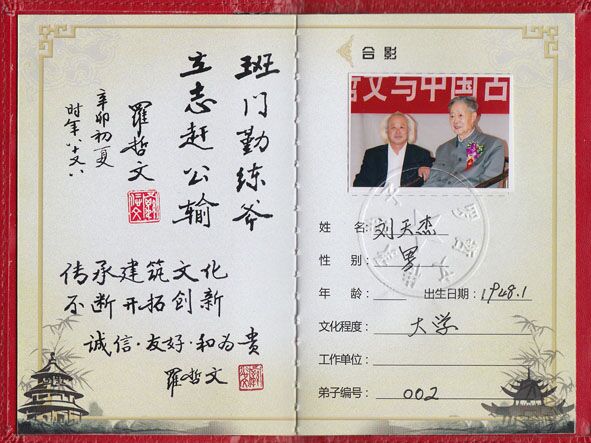 班门勤练斧
立志赶公输
羅哲文
辛卯初夏
时年八十又八
传承建筑文化
不断开拓创新
诚信·友好·和为贵
羅哲文
合影
文与中国古
姓 名: 刘天杰
性 别: 男
年 龄: 出生日期: 1948.1
文化程度: 大学
工作单位:
弟子编号: 002